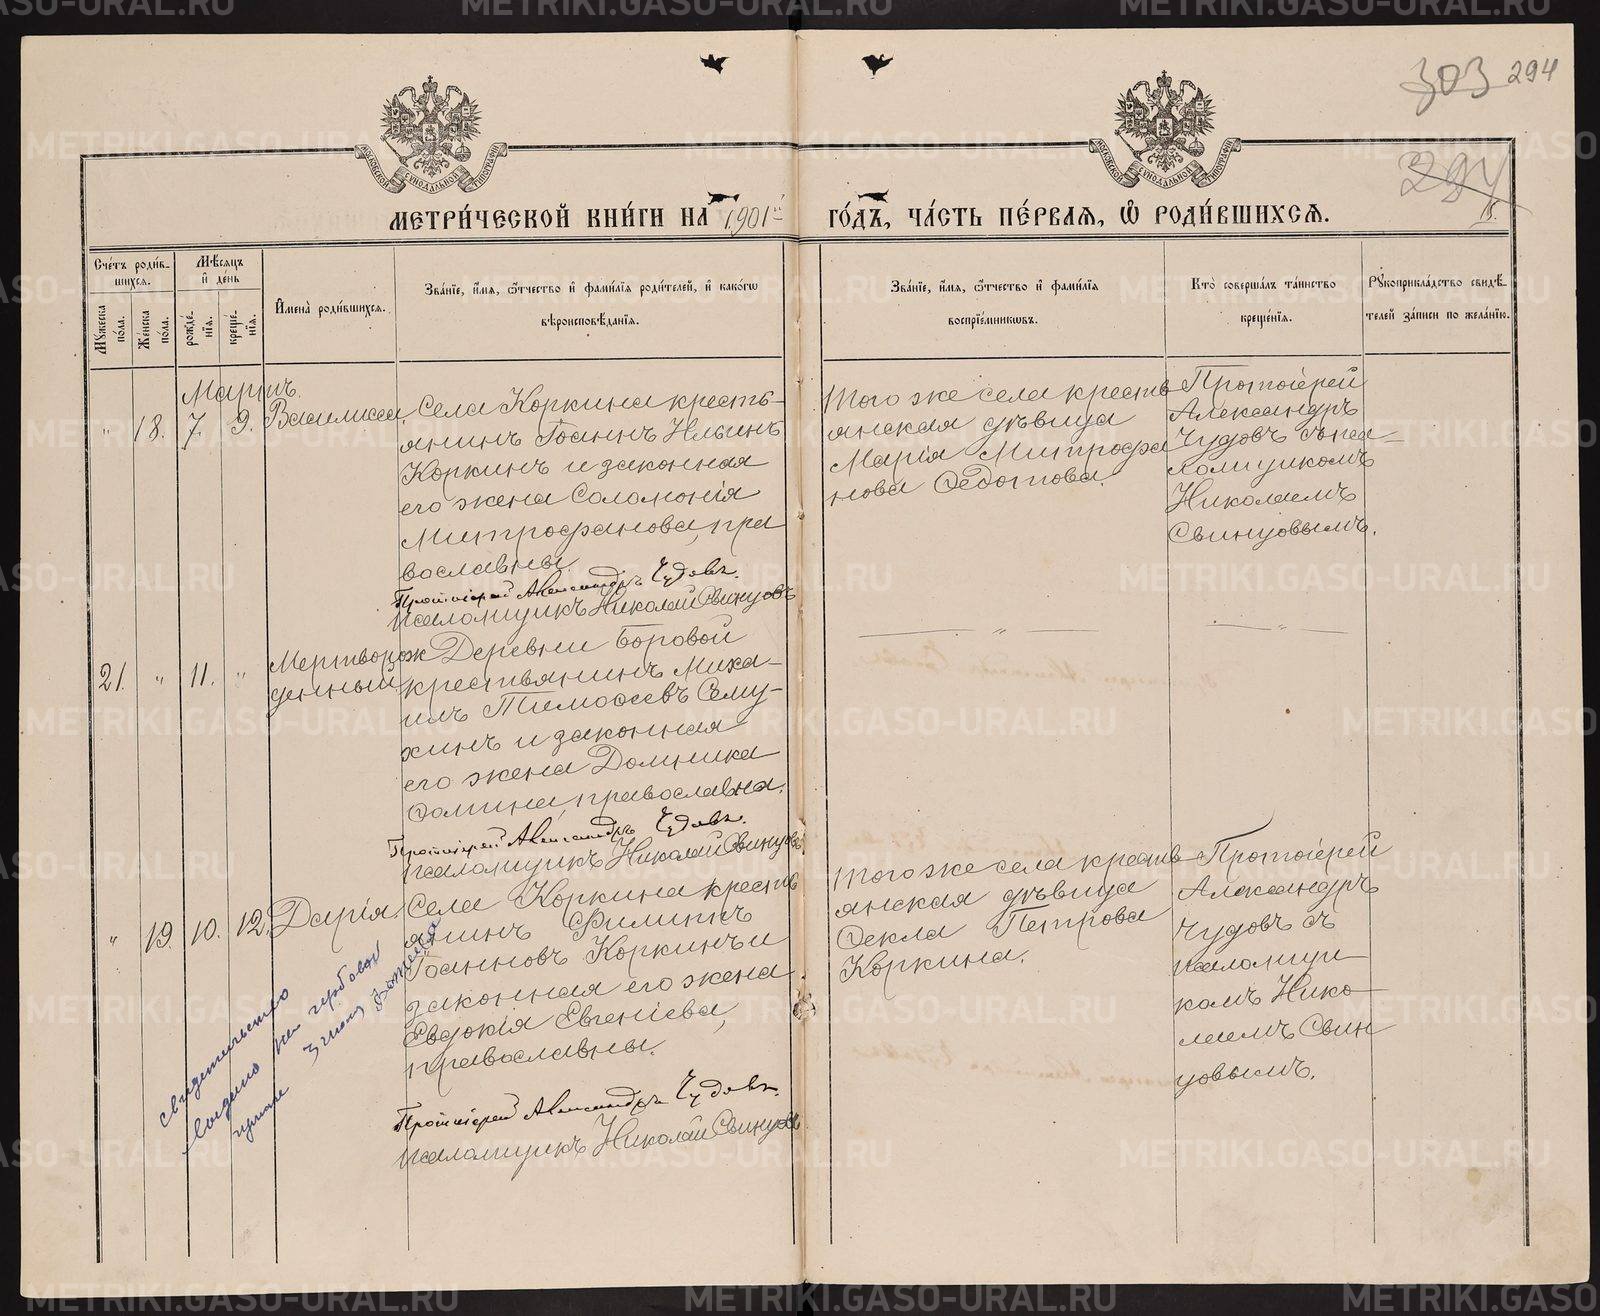 303 294
294
МОСКОВСКОЙ СѴНОДАЛЬНОЙ ТИПОГРАФІИ
МОСКОВСКОЙ СѴНОДАЛЬНОЙ ТИПОГРАФІИ
МЕТРИ́ЧЕСКОЙ КНИ́ГИ НА 1901й ГО́ДЪ, ЧА́СТЬ ПЕ́РВАЯ, Ѽ РОДИ́ВШИХСЯ.
Сче́тъ роди́в-
шихся.
Му́жеска
по́ла.
Же́нска
по́ла.
Мѣ́сяцъ
и҆ де́нь
рожде́-
нїя.
креще́-
нїя.
И҆мена̀ роди́вшихся.
Зва́нїе, и҆́мя, ѻ҆́тчество и҆ фами́лїя роди́телей, и҆ како́гѡ
вѣроисповѣ́данїя.
Зва́нїе, и҆́мя, ѻ҆́тчество и҆ фами́лїя
воспрїе́мникѡвъ.
Кто̀ соверша́лъ та́инство
креще́нїя.
Рꙋкоприкла́дство свидѣ́-
телей за́писи по жела́нїю.
Мартъ.
" 18. 7. 9. Василисса.
Села Коркина кресть-
янинъ Іоаннъ Ильинъ
Коркинъ и законная
его жена Соломонія
Митрофанова, пра
вославны.
Протоіерей Александръ Чудовъ.
Псаломщикъ Николай Свинцовъ
Того же села кресть
янская дѣвица
Марія Митрофа
нова Ѳедотова.
Протоіерей
Александръ
Чудовъ съ пса-
ломщикомъ
Николаемъ
Свинцовымъ.
21. " 11. "
Мертворож
денный
Деревни Боровой
крестьянинъ Миха-
илъ Тимоѳеевъ Сему-
хинъ и законная
его жена Домника
Ѳомина, православна.
Протоіерей Александръ Чудовъ.
Псаломщикъ Николай Свинцовъ
"
"
" 19. 10. 12. Дарія.
Села Коркина кресть
янинъ Филиппъ
Іоанновъ Коркинъ и
законная его жена
Евдокія Евгеніева,
православны.
Протоіерей Александръ Чудовъ.
Псаломщикъ Николай Свинцовъ
Того же села кресть
янская дѣвица
Ѳекла Петрова
Коркина.
Протоіерей
Александръ
Чудовъ съ
псаломщи
комъ Нико-
лаемъ Свин
цовымъ.
свидетельство
выдано на гербовой